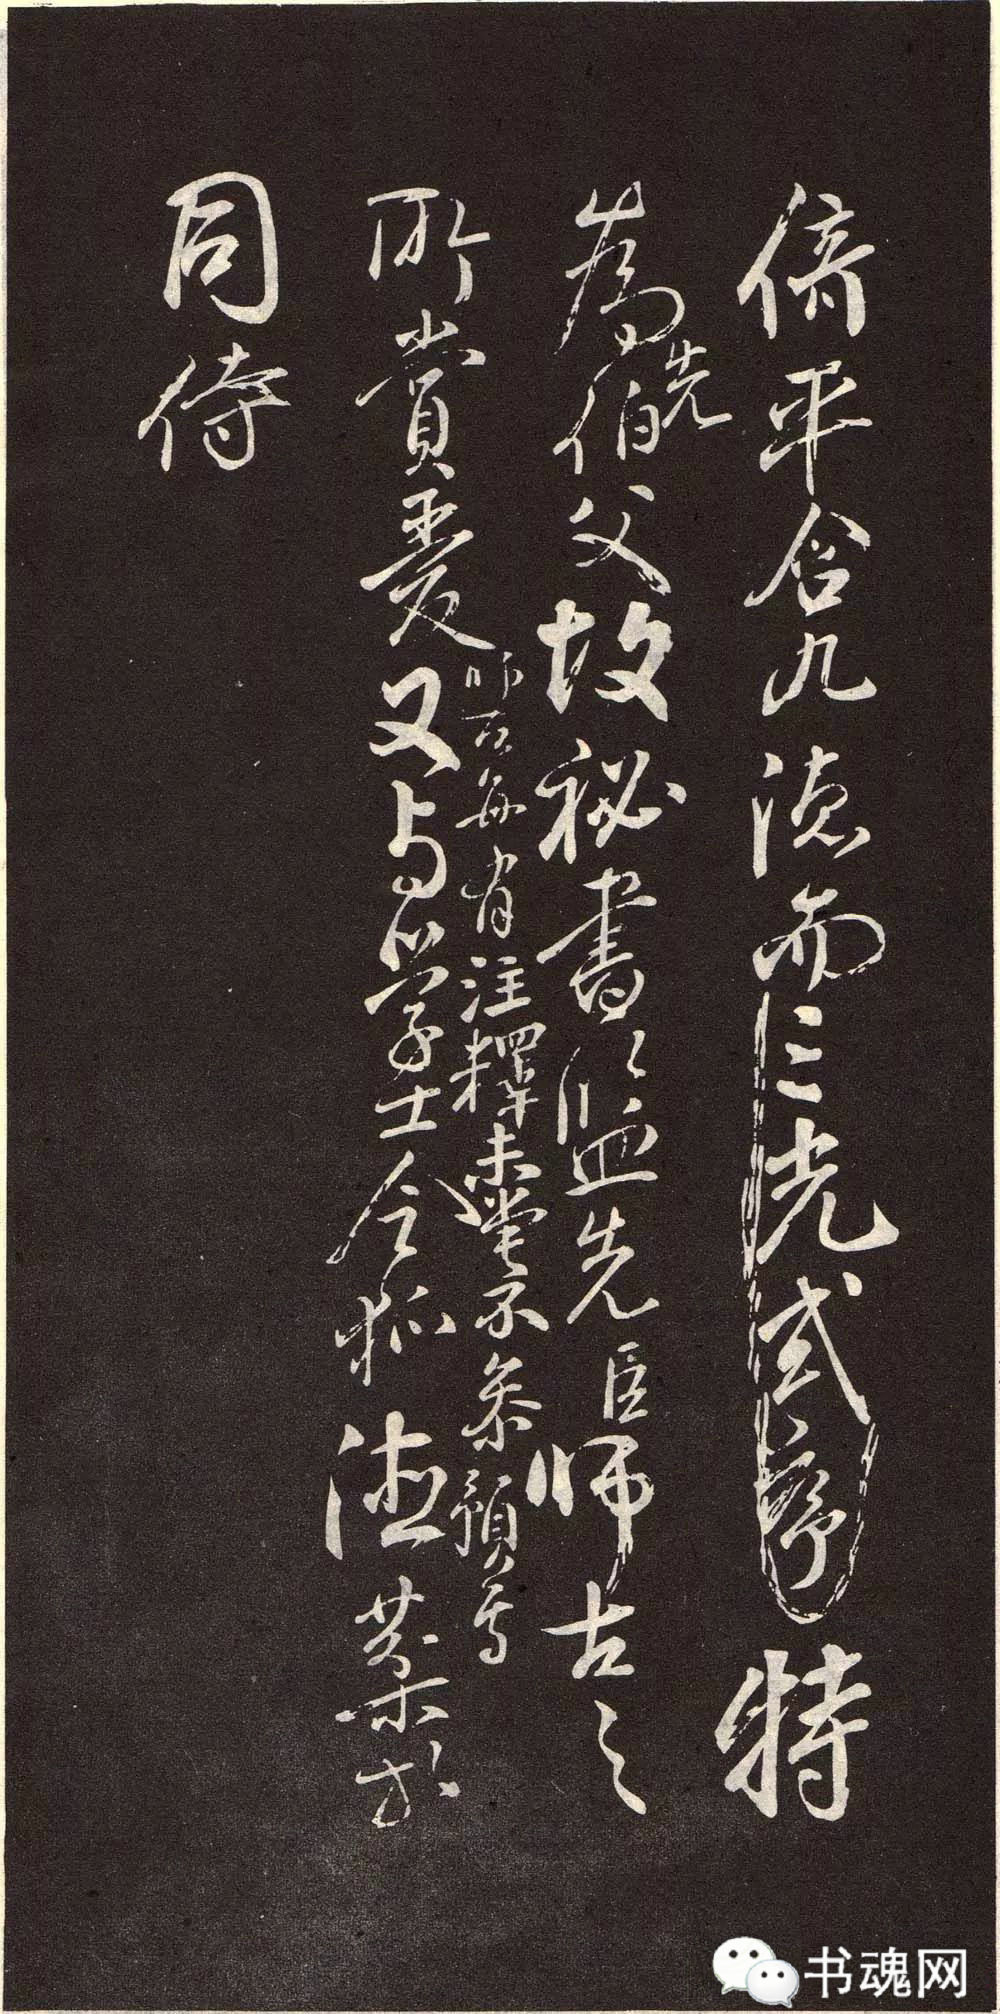 倚平含九德而三光式序特
為先伯父故祕書監先臣師古之
所賞愛又与學士令狐德棻
師古每有注釋未嘗不參預焉
同侍
书魂网